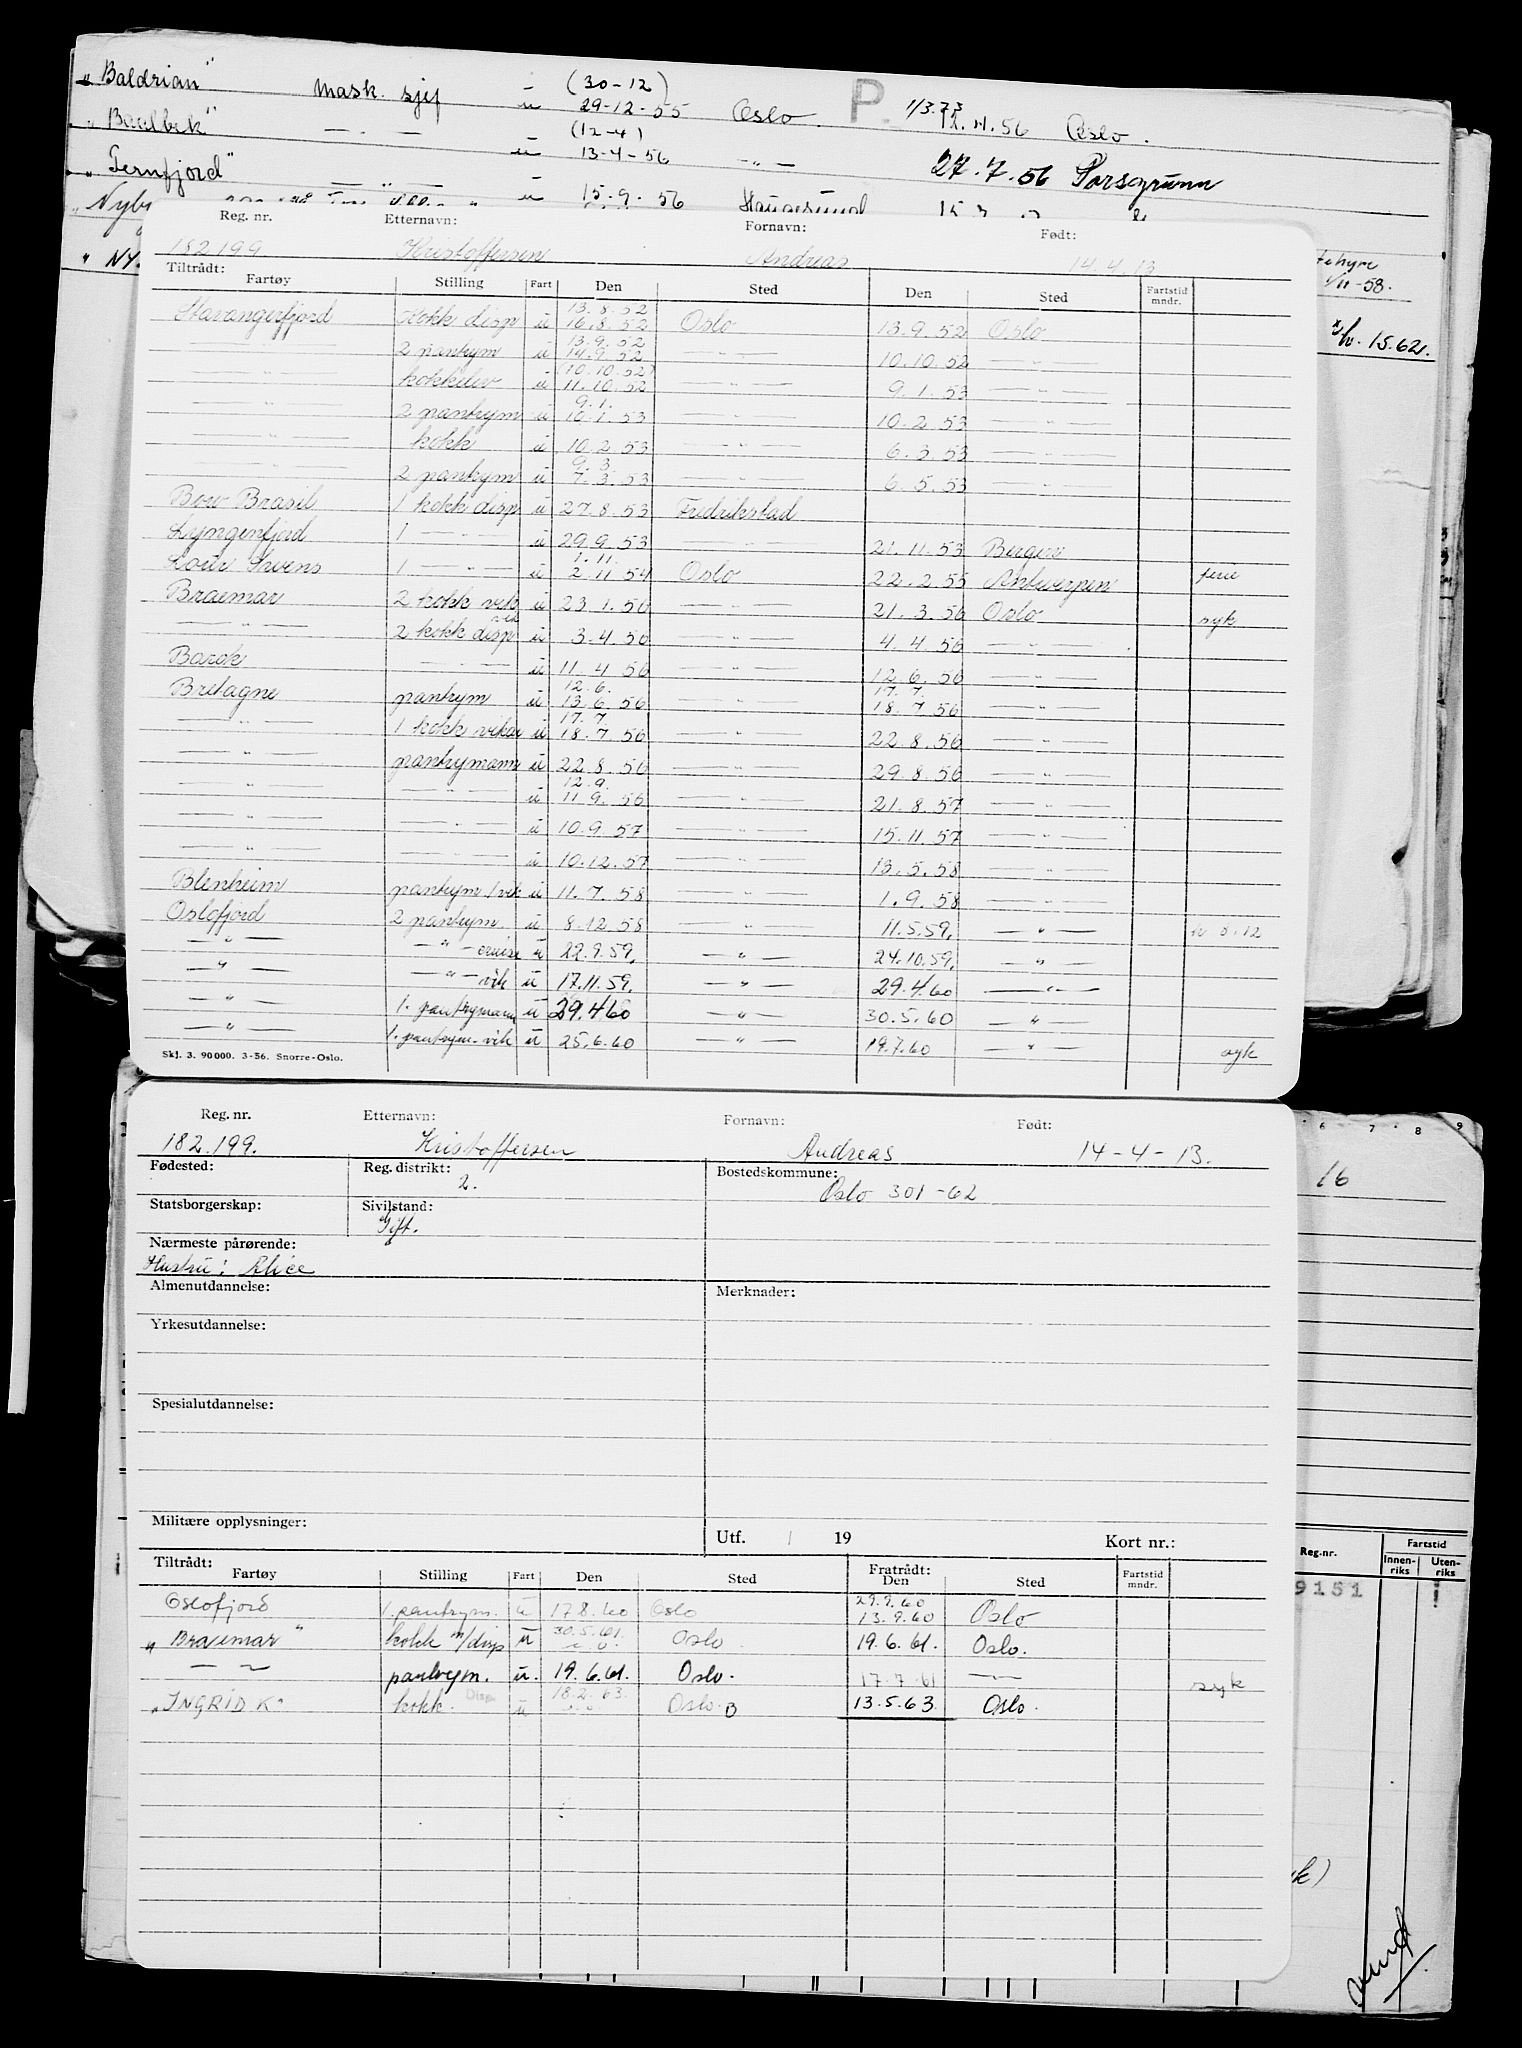 "Baldrian" mask. sjef ü (30-12) 29-12-55 Oslo. P. 1/3.73 12.4.56 Oslo.
"Baalbek" — . — ü (12-4) 13-4-56 — " — 27.7.56 Porsgrunn
"Ternfjord" — " — ü 15.9.56 Haugesund
Reg. nr. Etternavn: Fornavn: Født:
182199 Kristoffersen Andreas 14.4.13
Tiltrådt:
Fartøy Stilling Fart Den Sted Den Sted Fartstid mndr.
Stavangerfjord Kokk disp ü 13.8.52 16.8.52 Oslo 13.9.52 Oslo
2 pantrym ü 13.9.52 14.9.52 — " — 10.10.52 — " —
— " — kokkelev ü (10.10.52) 11.10.52 — " — 9.1.53 — " —
— " — 2 pantrym ü 9.1. 10.1.53 — " — 10.2.53 — " —
— " — kokk ü 10.2.53 — " — 6.3.53 — " —
— " — 2 pantrym ü 9.3. 7.3.53 — " — 6.5.53 — " —
Bow Brasil 1 kokk disp ü 27.8.53 Fredrikstad
Lyngenfjord 1 — " — ü 29.9.53 — " — 21.11.53 Bergen
1 — " — ü 1.11. 2.11.54 Oslo 22.2.55 Antwerpen ferie
Braemar 2 kokk vik ü 23.1.56 — " — 21.3.56 Oslo syk
— " — 2 kokk disp vik ü 3.4.56 — " — 4.4.56 — " —
Barok — " — ü 11.4.56 — " — 12.6.56 — " —
Bretagne pantrym ü 12.6. 13.6.56 — " — 17.7. 18.7.56 — " —
— " — 1 kokk vikar ü 17.7 18.7.56 — " — 22.8.56 — " —
— " — pantrymann ü 22.8.56 — " — 29.8.56 — " —
— " — — " — ü 12.9. 11.9.56 — " — 21.8.57 — " —
— " — — " — ü 10.9.57 — " — 15.11.57 — " —
— " — — " — ü 10.12.57 — " — 13.5.58 — " —
Blenheim pantrym/vik ü 11.7.58 — " — 1.9.58 — " —
Oslofjord 2 pantrym. ü 8.12.58 — " — 11.5.59. — " — 8.12
— " — — " — cruise ü 22.9.59. — " — 24.10.59. — " —
— " — — " — vik ü 17.11.59. — " — 29.4.60 — " —
— " — 1. pantrymann ü 29.4.60 — " — 30.5.60 — " —
— " — 1. pantrym. vik ü 25.6.60 — " — 19.7.60 — " — syk
Skj. 3. 90000. 3-56. Snorre-Oslo.
11-58.
15.62.
Reg. nr. Etternavn: Fornavn: Født:
182.199. Kristoffersen Andreas 14-4-13.
Fødested: Reg. distrikt: 2. Bostedskommune: Oslo 301-62
Statsborgerskap: Sivilstand: Gift.
Nærmeste pårørende:
Hustru: Alice
Almenutdannelse: Merknader:
Yrkesutdannelse:
Spesialutdannelse:
Militære opplysninger:
Utf. / 19 Kort nr.:
Tiltrådt: Fratrådt:
Fartøy Stilling Fart Den Sted Den Sted Fartstid mndr.
Oslofjord 1. pantrym. ü 17.8.60 Oslo 29.9.60 13.9.60 Oslo
"Braemar" kokk m/disp ü 30.5.61. Oslo 19.6.61. Oslo.
— " — pantrym. ü. 19.6.61. Oslo. 17.7.61 — " — syk
"INGRID K" kokk. Disp. ü 18.2.63. Oslo. B 13.5.63. Oslo.
6 7 8 9
16
Reg.-nr. Fartstid
Innen-riks Uten-riks
9151